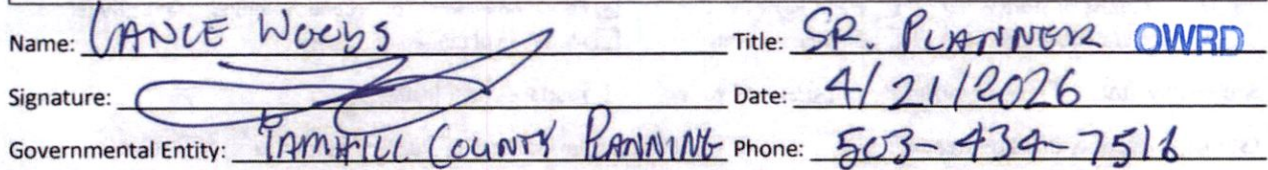 Name: LANCE WOODS Title: SR. PLANNER OWRD
Signature: Date: 4/21/2026
Governmental Entity: YAMHILL COUNTY PLANNING Phone: 503-434-7516